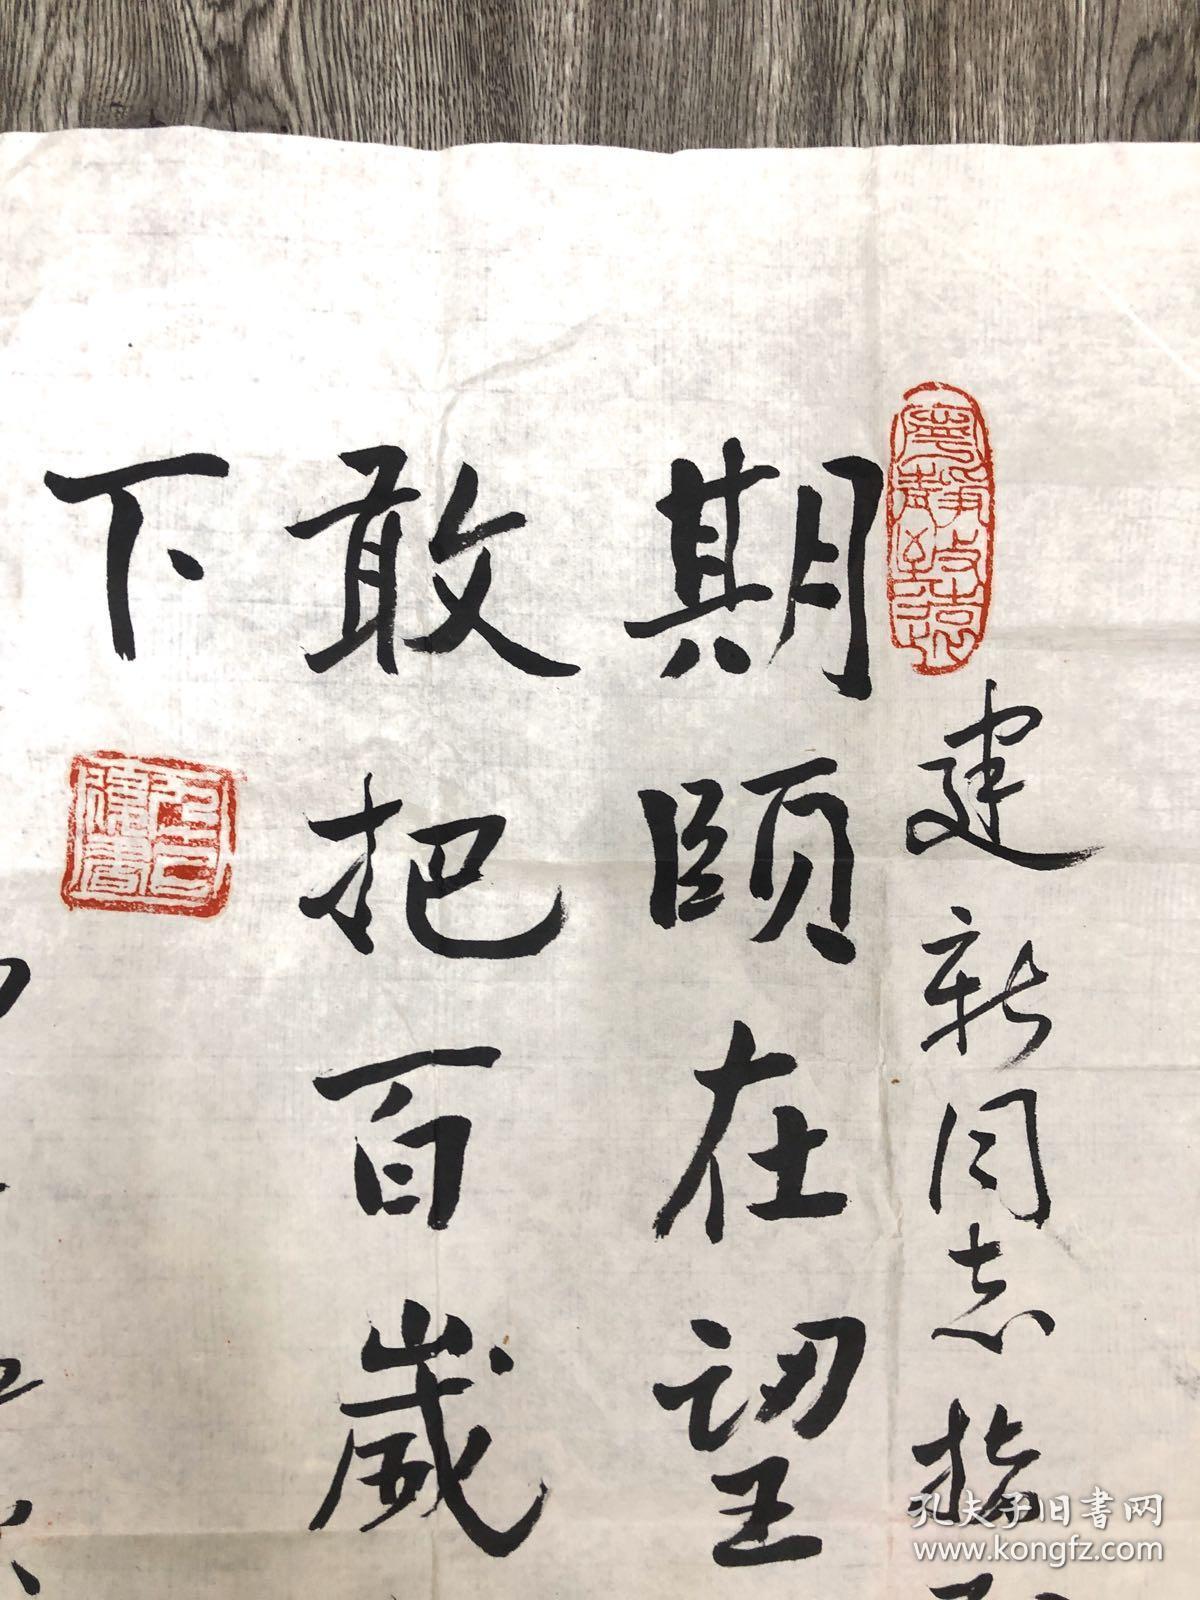 寧靜致遠
建新同志指
期頤在望
敢把百歲
下
孔夫子旧书网
www.kongfz.com